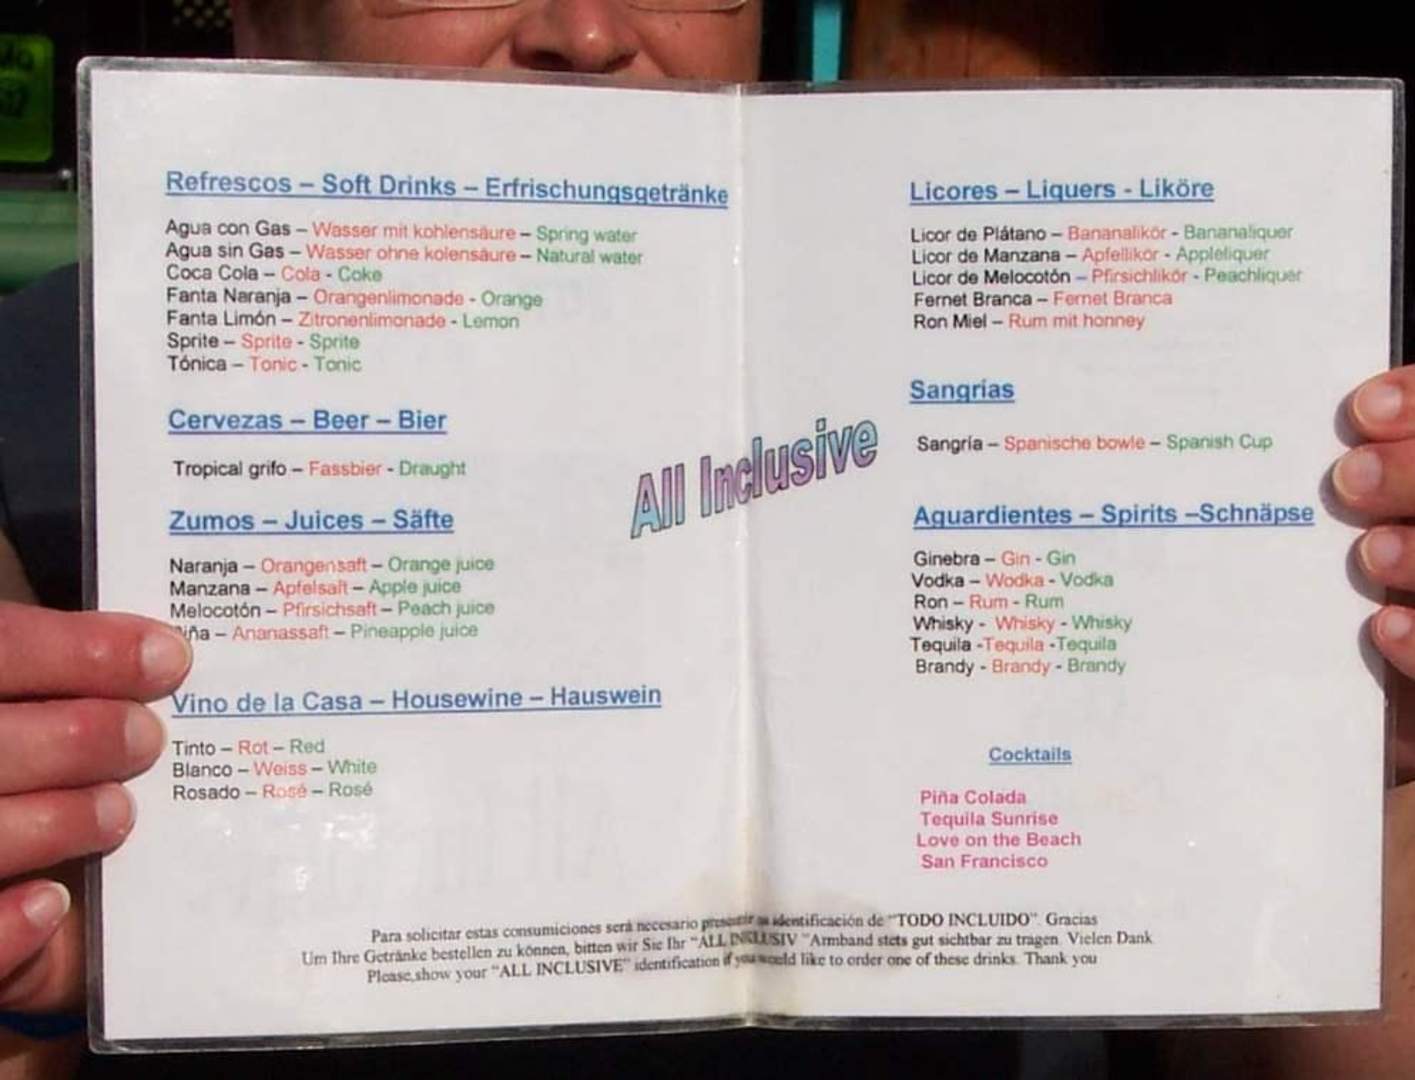 Refrescos – Soft Drinks – Erfrischungsgetränke
Agua con Gas – Wasser mit kohlensäure – Spring water
Agua sin Gas – Wasser ohne kolensäure – Natural water
Coca Cola – Cola - Coke
Fanta Naranja – Orangenlimonade - Orange
Fanta Limón – Zitronenlimonade - Lemon
Sprite – Sprite - Sprite
Tónica – Tonic - Tonic
Cervezas – Beer – Bier
Tropical grifo – Fassbier - Draught
Zumos – Juices – Säfte
Naranja – Orangensaft – Orange juice
Manzana – Apfelsaft – Apple juice
Melocotón – Pfirsichsaft – Peach juice
iña – Ananassaft – Pineapple juice
Vino de la Casa – Housewine – Hauswein
Tinto – Rot – Red
Blanco – Weiss – White
Rosado – Rosé – Rosé
All Inclusive
Licores – Liquers - Liköre
Licor de Plátano – Bananalikör - Bananaliquer
Licor de Manzana – Apfellikör - Appleliquer
Licor de Melocotón – Pfirsichlikör - Peachliquer
Fernet Branca – Fernet Branca
Ron Miel – Rum mit honney
Sangrías
Sangría – Spanische bowle – Spanish Cup
Aguardientes – Spirits –Schnäpse
Ginebra – Gin - Gin
Vodka – Wodka - Vodka
Ron – Rum - Rum
Whisky - Whisky - Whisky
Tequila -Tequila -Tequila
Brandy - Brandy - Brandy
Cocktails
Piña Colada
Tequila Sunrise
Love on the Beach
San Francisco
Para solicitar estas consumiciones será necesario presentar su identificación de "TODO INCLUIDO". Gracias
Um Ihre Getränke bestellen zu können, bitten wir Sie Ihr "ALL INKLUSIV "Armband stets gut sichtbar zu tragen. Vielen Dank
Please,show your "ALL INCLUSIVE" identification if you would like to order one of these drinks. Thank you